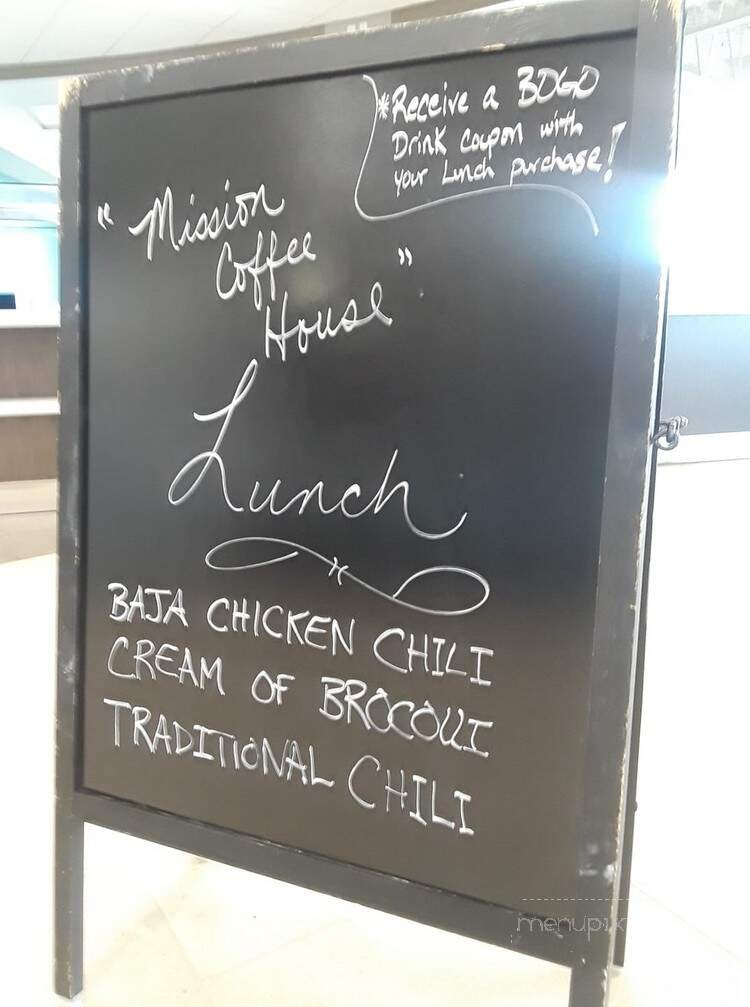 *Receive a BOGO
Drink coupon with
your Lunch purchase!
"Mission
Coffee
House"
Lunch
BAJA CHICKEN CHILI
CREAM OF BROCOLLI
TRADITIONAL CHILI
menupix